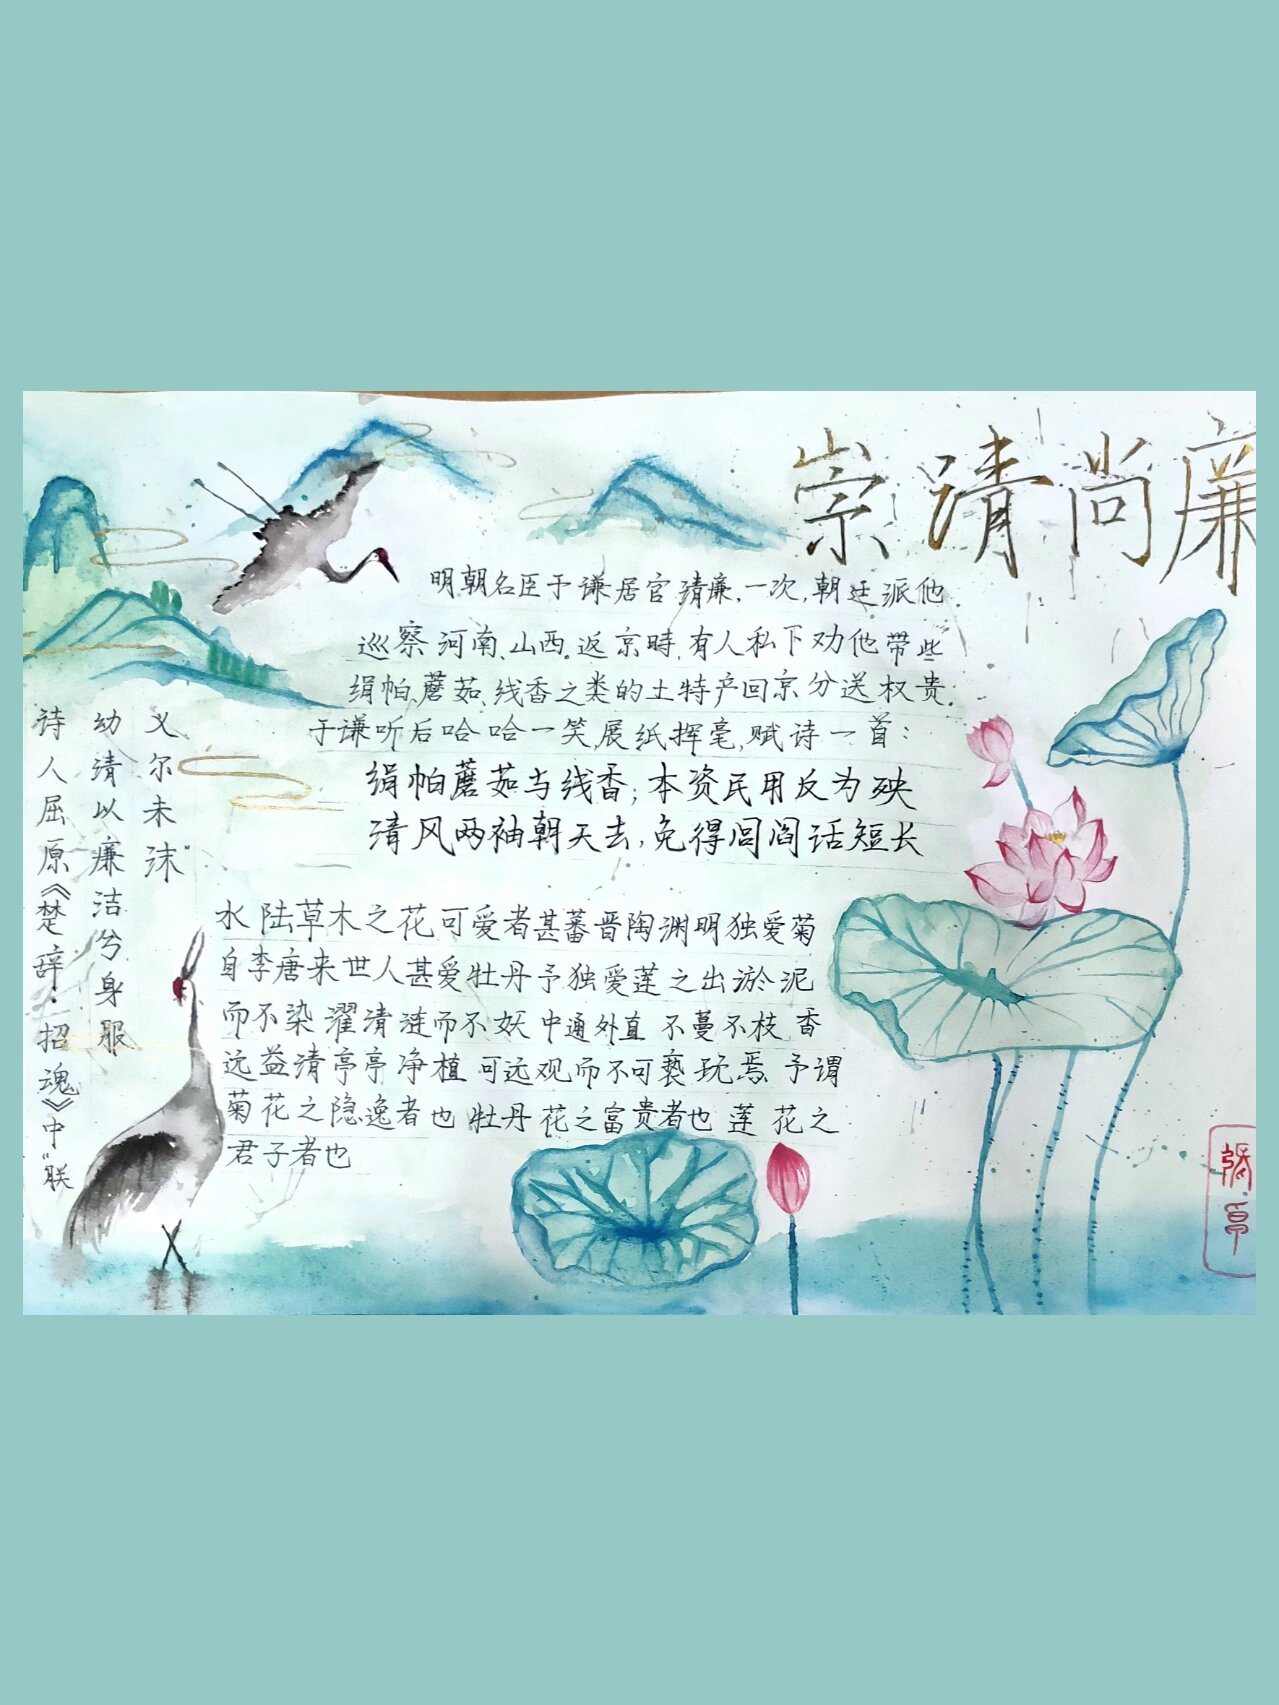 崇清尚廉
明朝名臣于谦居官清廉,一次,朝廷派他
巡察河南、山西。返京時,有人私下劝他带些
绢帕、蘑茹、线香之类的土特产回京分送权贵。
于谦听后哈哈一笑,展纸挥毫,赋诗一首:
绢帕蘑茹与线香;本资民用反为殃
清风两袖朝天去,免得闾阎话短长
水陆草木之花可爱者甚蕃晋陶渊明独爱菊
自李唐来世人甚爱牡丹予独爱莲之出淤泥
而不染濯清涟而不妖中通外直不蔓不枝香
远益清亭亭净植可远观而不可亵玩焉予谓
菊花之隐逸者也牡丹花之富贵者也莲花之
君子者也
诗人屈原《楚辞·招魂》中“联
幼清以廉洁兮身服
义尔未沫”